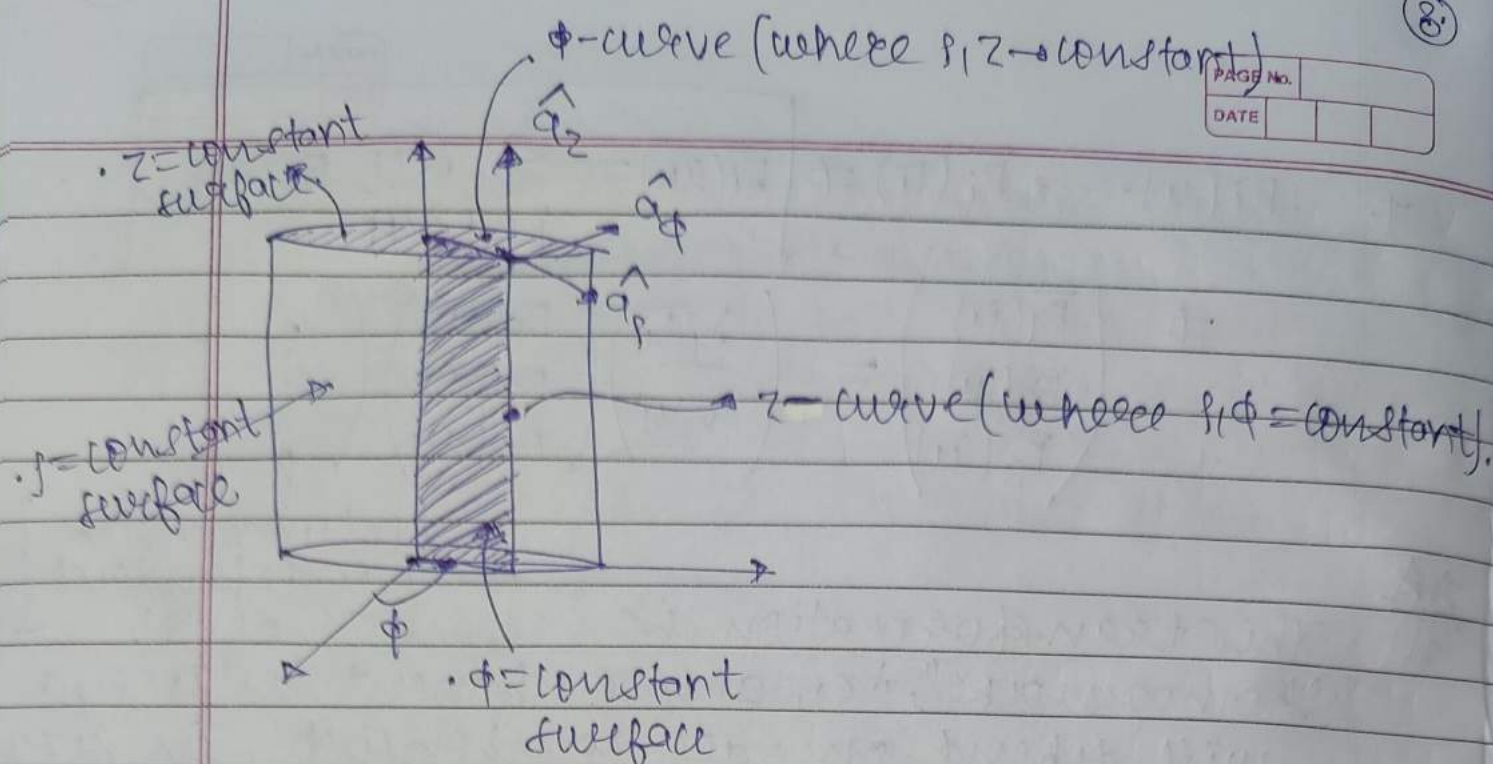 8.
ϕ-curve (where ρ, z→constant)
PAGE No.
DATE
â_z
. z=constant
surface
â_ϕ
â_ρ
z-curve (where ρ,ϕ=constant).
.ρ=constant
surface
ϕ
.ϕ=constant
surface